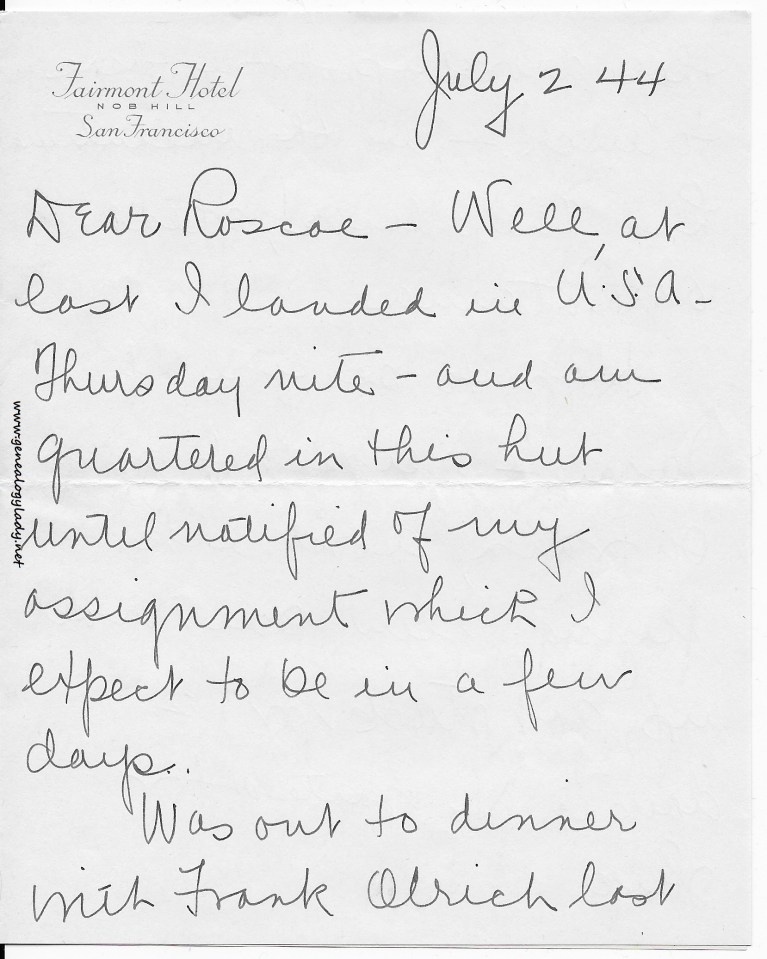 Fairmont Hotel
NOB HILL
San Francisco
July 2 44
Dear Roscoe – Well, at
last I landed in U.S.A. –
Thursday nite – and am
quartered in this hut
until notified of my
assignment which I
expect to be in a few
days..
Was out to dinner
with Frank Olrich last
www.genealogylady.net